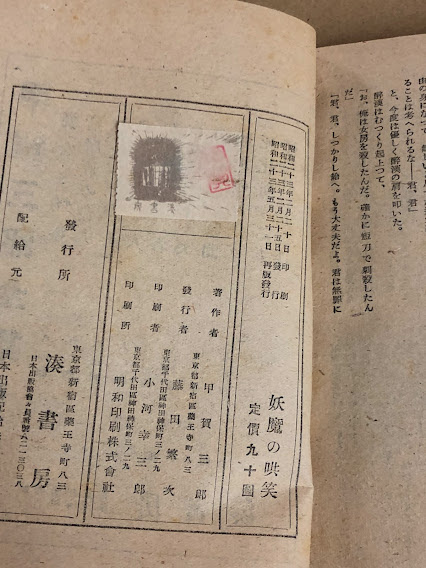 由の身になつて
ることは考へられるな――君、君」
と、今度は優しく醉漢の肩を叩いた。
醉漢はむつくり起上つて、
「お、俺は女房を殺したんだ。確かに短刀で刺殺したん
だ」
「君、君、しつかりし給へ。もう大丈夫だよ。君は無罪に
妖魔の哄笑
定價九十圓
昭和二十三年二月二十日 印刷
昭和二十三年二月二十五日 發行
昭和二十三年五月三十一日 再版發行
著作者 甲賀三郎
東京都新宿區藥王寺町八三
發行者 藤田繁次
東京都千代田區神田神保町三ノ二九
印刷者 小河幸三郎
東京都千代田區神田神保町三ノ二九
印刷所 明和印刷株式會社
湊書房
發行所
東京都新宿區藥王寺町八三
湊書房
日本出版協會會員番號
配給元
日本出版配給